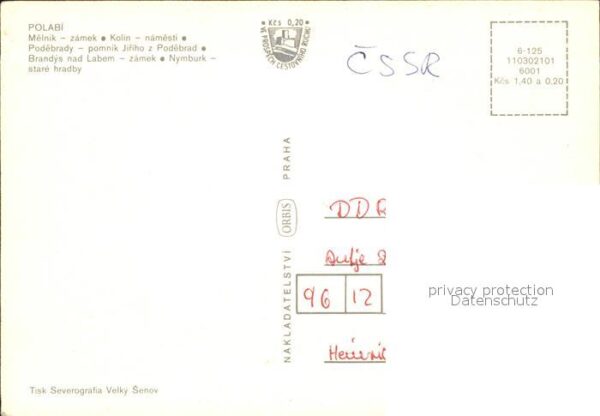 POLABÍ
Mělník – zámek ● Kolín – náměstí ●
Poděbrady – pomník Jiřího z Poděbrad ●
Brandýs nad Labem – zámek ● Nymburk –
staré hradby
● Kčs 0,20 ●
VE PROSPĚCH CESTOVNÍHO RUCHU
ČSSR
6-125
110302101
6001
Kčs 1,40 a 0,20
NAKLADATELSTVÍ ORBIS PRAHA
DDR
96 12
privacy protection
Datenschutz
Tisk Severografia Velký Šenov